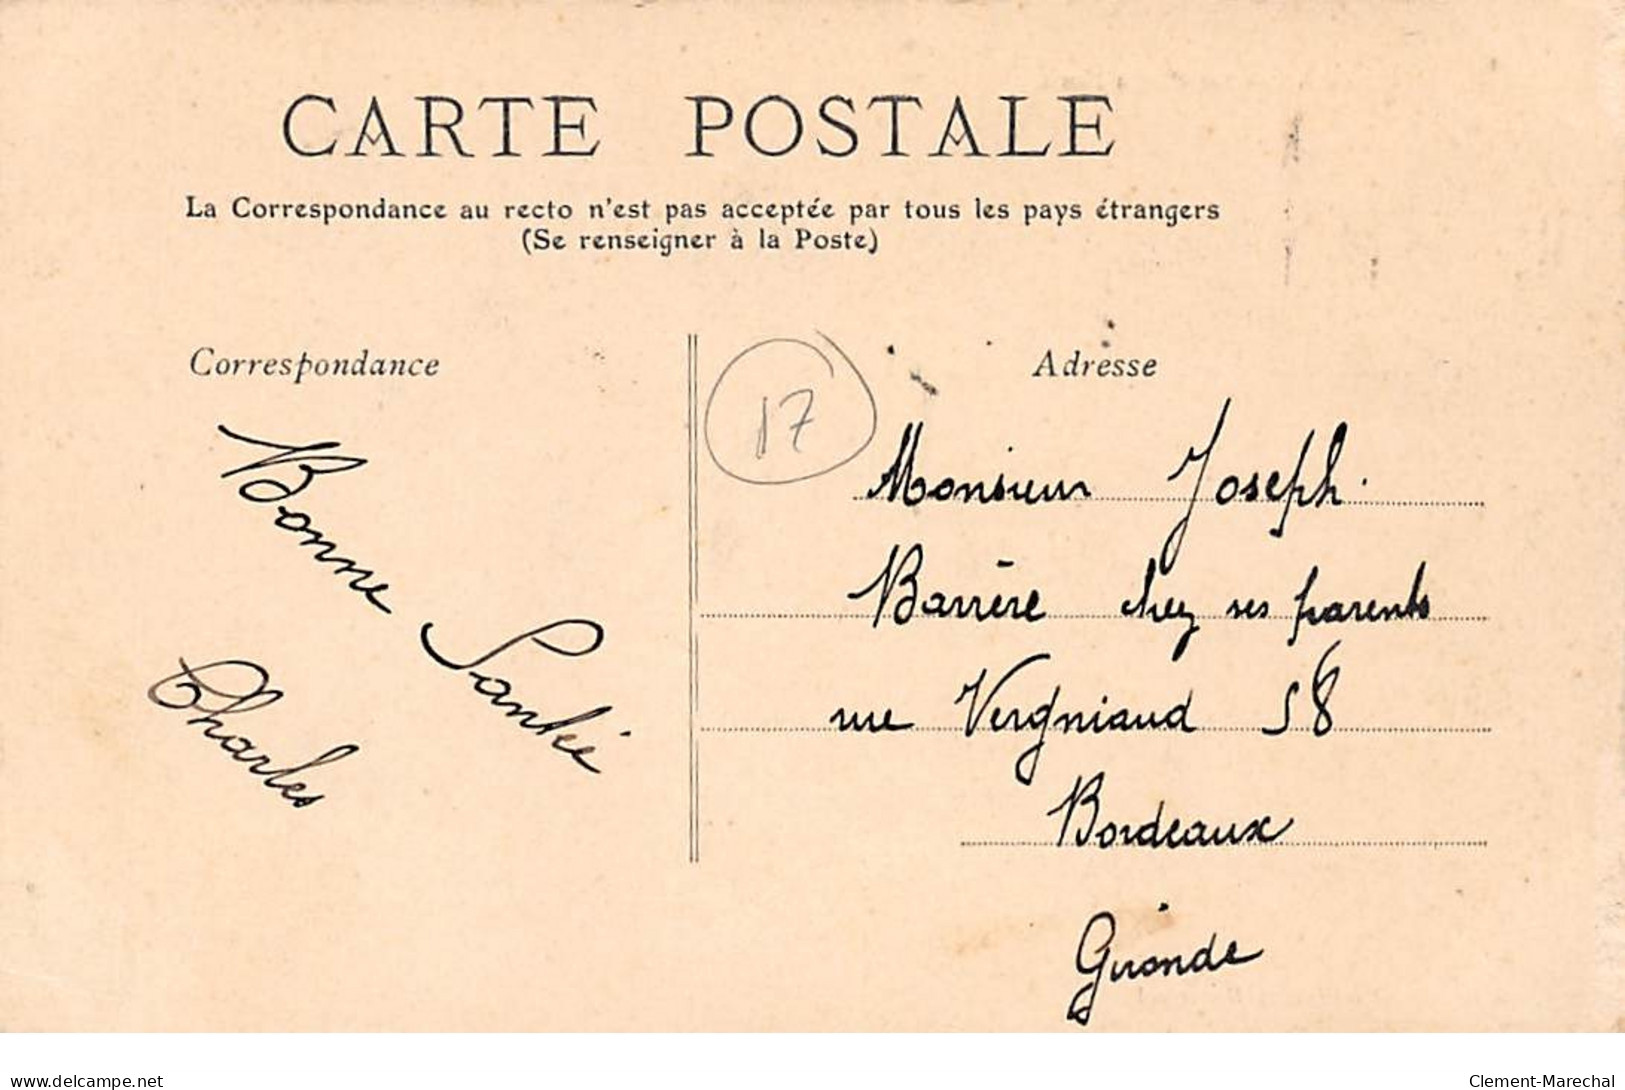 CARTE POSTALE
La Correspondance au recto n'est pas acceptée par tous les pays étrangers
(Se renseigner à la Poste)
Correspondance
Bonne Santé
Charles
17
Adresse
Monsieur Joseph.
Barrère chez ses parents
rue Vergniaud 58
Bordeaux
Gironde
delcampe.net
Clement-Marechal